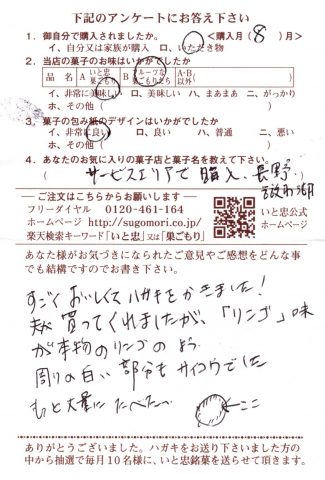 下記のアンケートにお答え下さい
1. 御自分で購入されましたか。 <購入月( 8 )月>
イ、自分又は家族が購入 ロ、いただき物
2. 当店の菓子のお味はいかがでしたか
品 名 A いと忠巣ごもり B フルーツな巣ごもりたち A・B以外( )
イ、非常に美味しい ロ、美味しい ハ、まあまあ ニ、がっかり
ホ、その他( )
3. 菓子の包み紙のデザインはいかがでしたか
イ、非常に良い ロ、良い ハ、普通 ニ、悪い
ホ、その他( )
4. あなたのお気に入りの菓子店と菓子名を教えて下さい。
(サービスエリアで 購入、長野。)
ご注文はこちらからお願いします
フリーダイヤル 0120-461-164
ホームページ http://sugomori.co.jp/
楽天検索キーワード「いと忠」又は「巣ごもり」
いと忠公式
ホームページ
あなた様がお気づきになられたご意見やご感想をどんな事
でも結構ですのでお書き下さい。
すごく おいしくて ハガキをかきました!
夫が 買ってくれましたが、「リンゴ」味
が本物のリンゴのよう。
周りの白い 部分も サイコウでした
もっと大量に たべたい
ここ
ありがとうございました。ハガキをお送り下さいました方の
中から抽選で毎月10名様に、いと忠銘菓を送らせて頂きます。